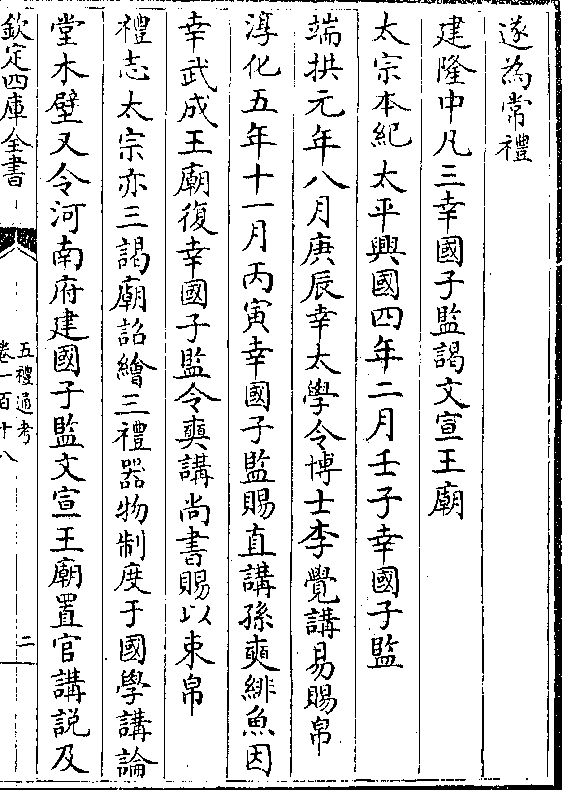 遂為常禮
建隆中凡三幸國子監謁文宣王廟
太宗本紀太平興國四年二月壬子幸國子監
端拱元年八月庚辰幸太學令博士李覺講易賜帛
淳化五年十一月丙寅幸國子監賜直講孫奭緋魚因
幸武成王廟復幸國子監令奭講尚書賜以束帛
禮志太宗亦三謁廟詔繪三禮器物制度于國學講論
堂木壁又令河南府建國子監文宣王廟置官講説及
欽定四庫全書
五禮通考
卷一百十八
二